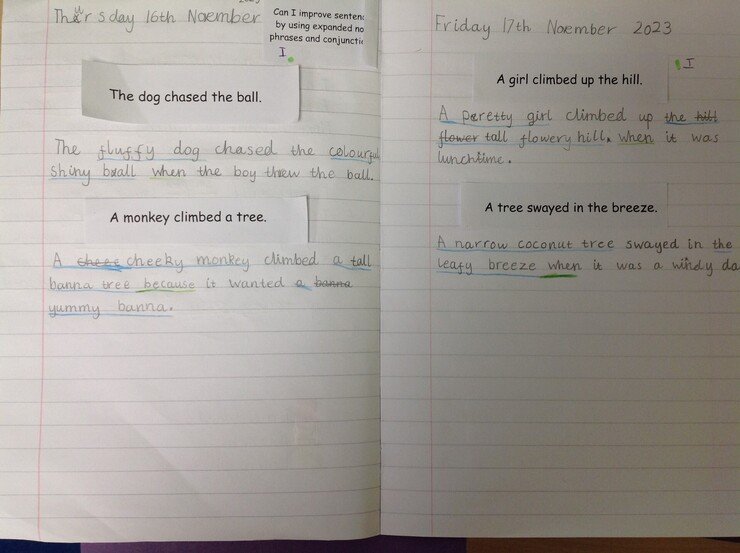 Thursday 16th Noember
Can I improve sentenc
by using expanded no
phrases and conjunctic
I
The dog chased the ball.
The fluffy dog chased the colourful
shiny ball when the boy threw the ball.
A monkey climbed a tree.
A cheec cheeky monkey climbed a tall
banna tree because it wanted a banna
yummy banna.
Friday 17th Noember 2023
I
A girl climbed up the hill.
A peretty girl climbed up the hill
flower tall flowery hill when it was
lunchtime.
A tree swayed in the breeze.
A narrow coconut tree swayed in the
leafy breeze when it was a windy da